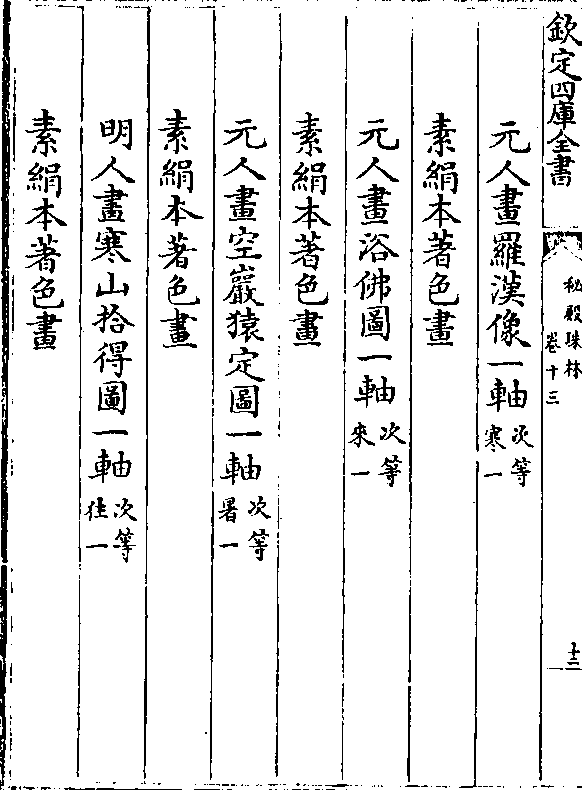 欽定四庫全書
秘殿珠林
卷十三
十二
元人畫羅漢像一軸次等寒一
素絹本著色畫
元人畫浴佛圖一軸次等來一
素絹本著色畫
元人畫空巖猿定圖一軸次等暑一
素絹本著色畫
明人畫寒山拾得圖一軸次等往一
素絹本著色畫